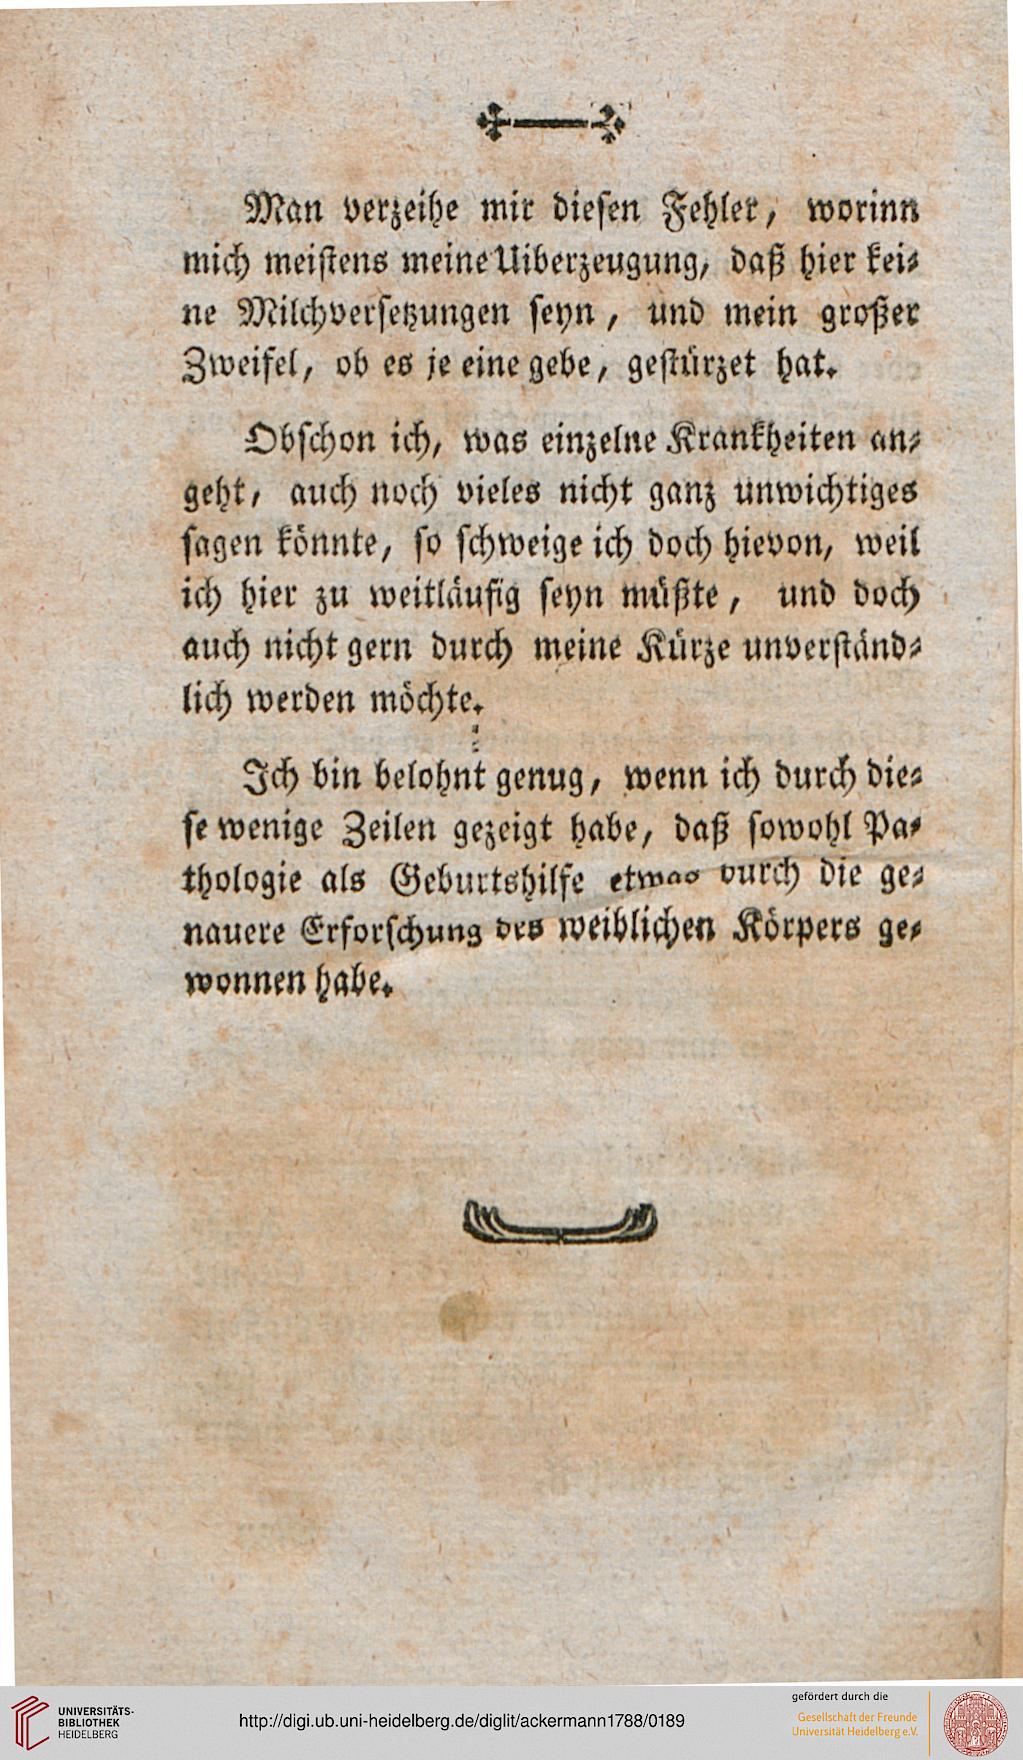 Man verzeihe mir diesen Fehler, worinn
mich meistens meine Uiberzeugung, daß hier kei-
ne Milchversetzungen seyn, und mein großer
Zweifel, ob es je eine gebe, gestürzet hat.
Obschon ich, was einzelne Krankheiten an-
geht, auch noch vieles nicht ganz unwichtiges
sagen könnte, so schweige ich doch hievon, weil
ich hier zu weitläufig seyn müßte, und doch
auch nicht gern durch meine Kürze unverständ-
lich werden möchte.
Ich bin belohnt genug, wenn ich durch die-
se wenige Zeilen gezeigt habe, daß sowohl Pa-
thologie als Geburtshilfe etwas durch die ge-
nauere Erforschung des weiblichen Körpers ge-
wonnen habe.
UNIVERSITÄTS-
BIBLIOTHEK
HEIDELBERG
http://digi.ub.uni-heidelberg.de/diglit/ackermann1788/0189
gefördert durch die
Gesellschaft der Freunde
Universität Heidelberg e.V.